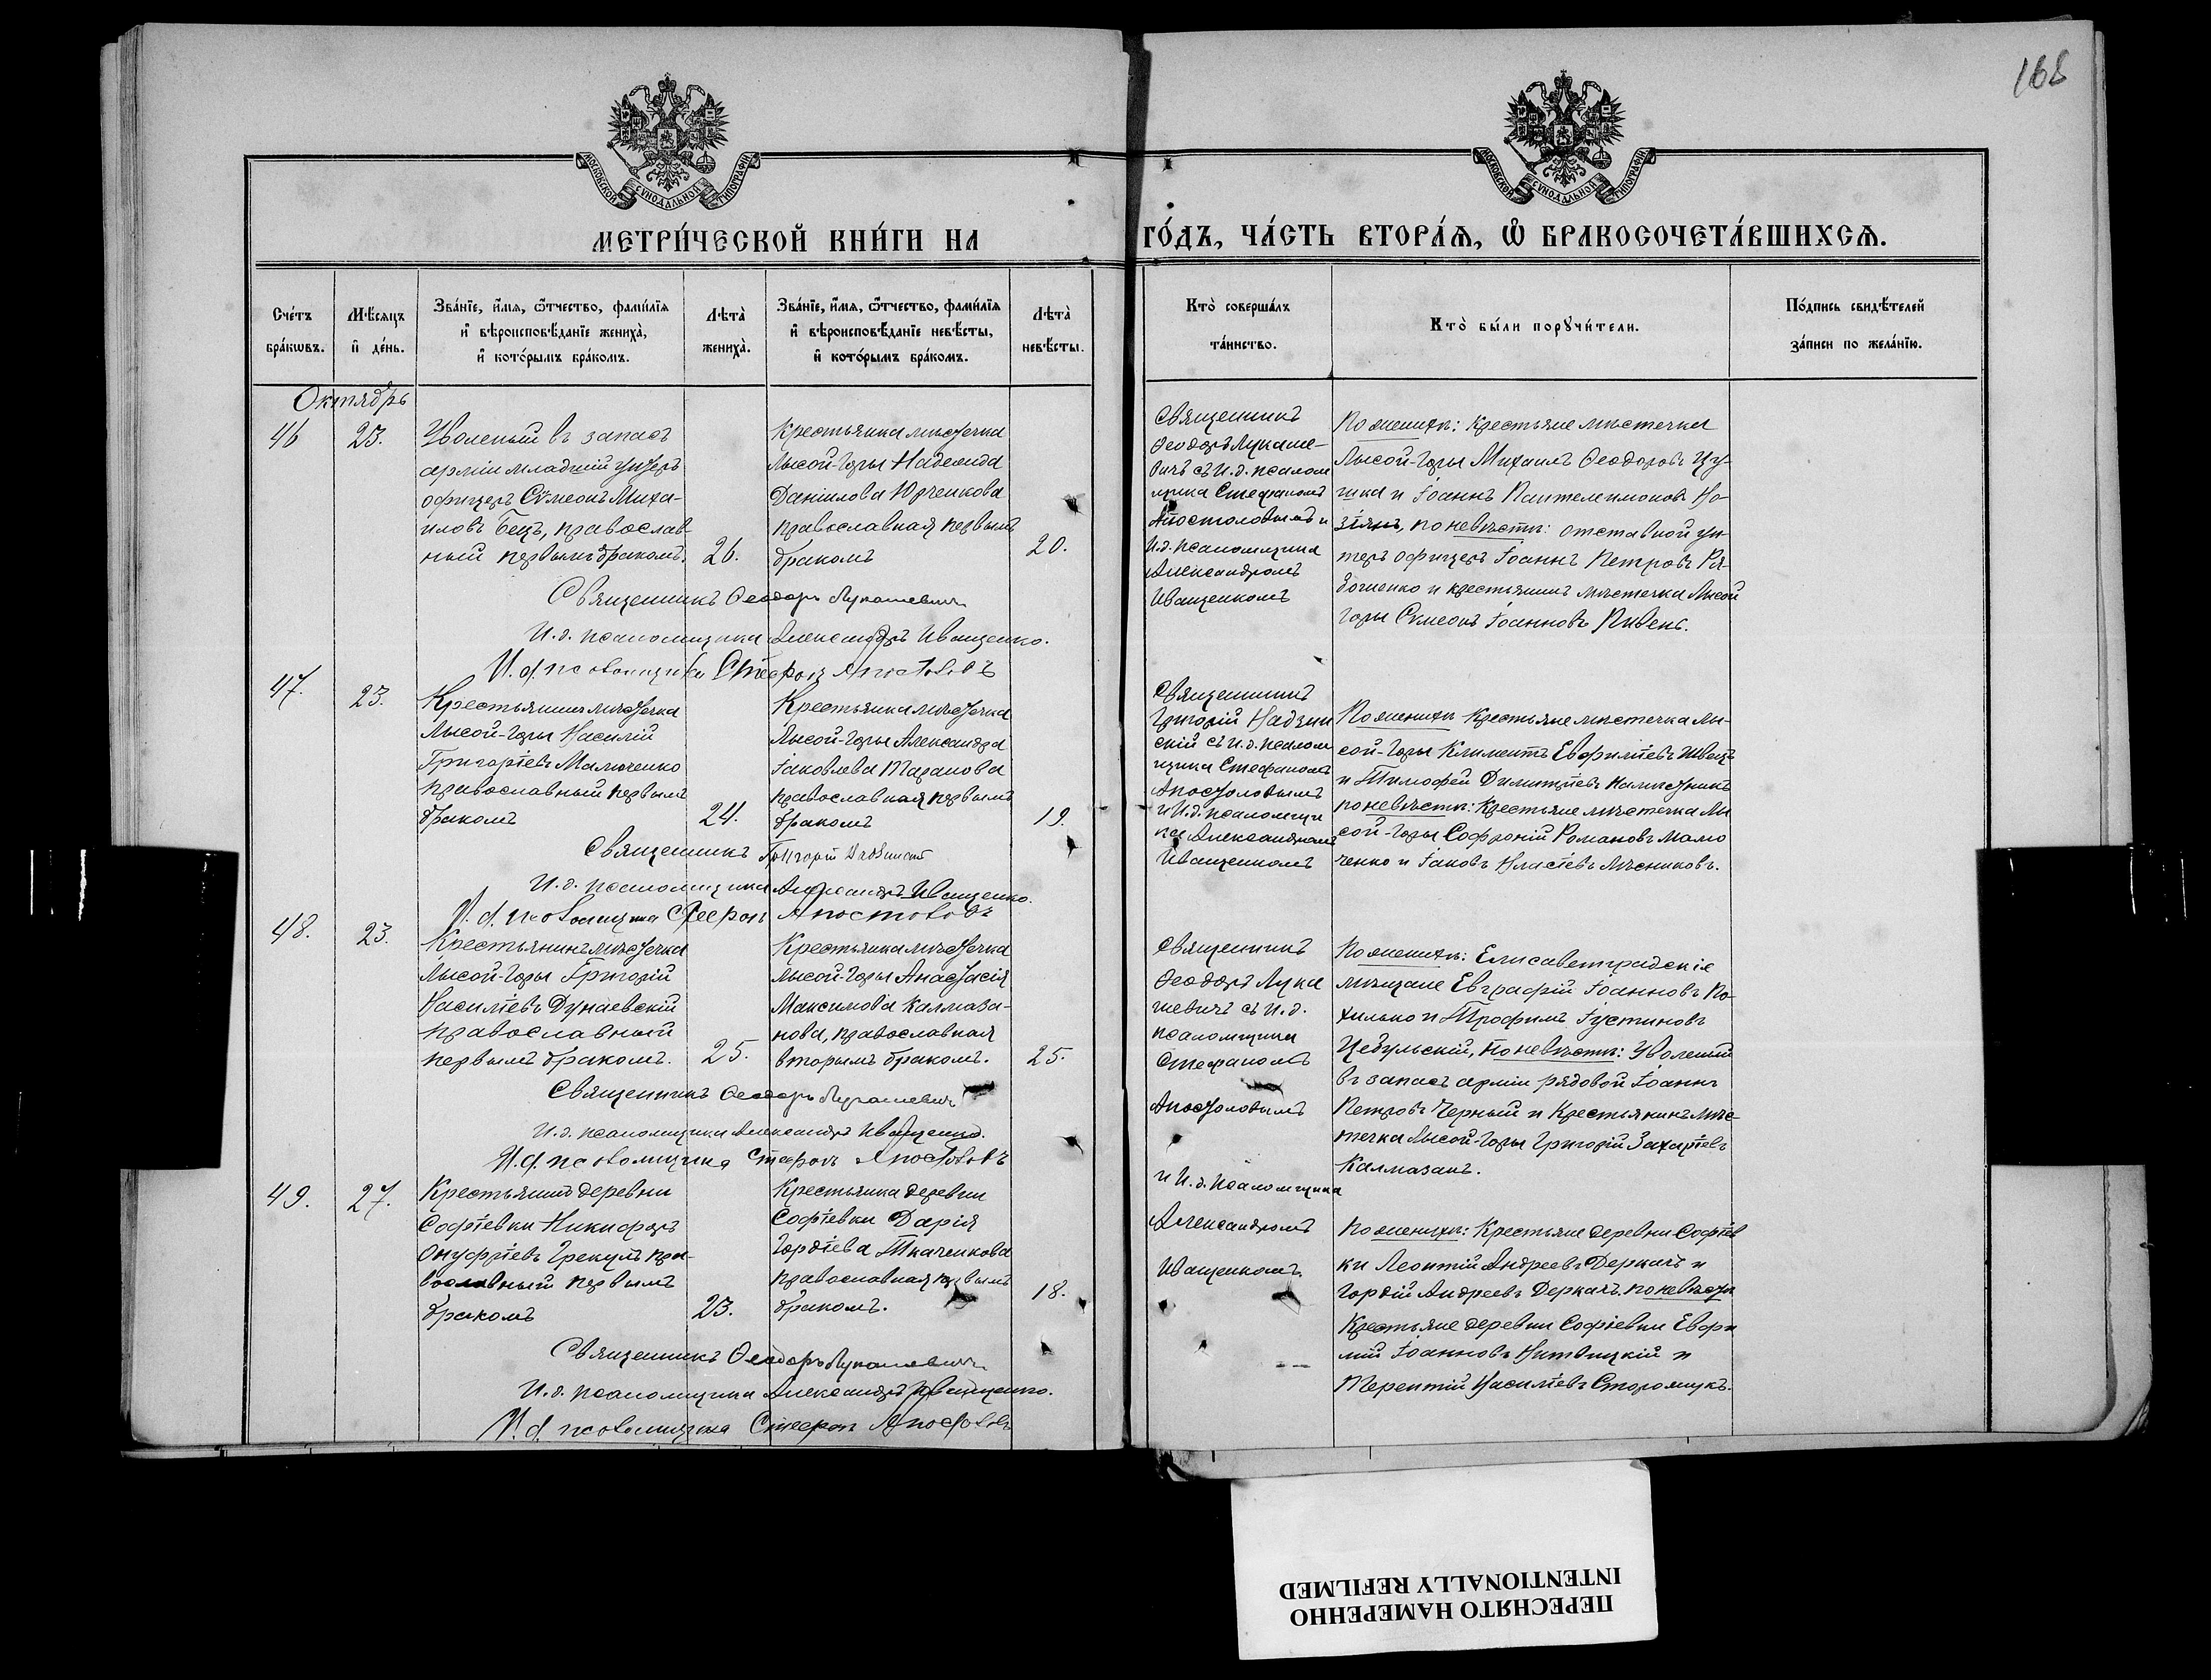 168
МОСКОВСКОЙ СѴНОДАЛЬНОЙ ТИПОГРАФІИ
МОСКОВСКОЙ СѴНОДАЛЬНОЙ ТИПОГРАФІИ
МЕТРИ́ЧЕСКОЙ КНИ́ГИ НА
ГО́ДЪ, ЧА́СТЬ ВТОРА́Ѧ, Ѽ БРАКОСОЧЕТА́ВШИХСѦ.
Сче́тъ бра́кѡвъ.
Мѣ́сѧцъ и҆ де́нь.
Зва́нїе, и҆́мѧ, ѻ҆́тчество, фами́лїѧ
и҆ вѣроисповѣ́данїе жениха̀,
и҆ кото́рымъ бра́комъ.
Лѣта̀ жениха̀.
Зва́нїе, и҆́мѧ, ѻ҆́тчество, фами́лїѧ
и҆ вѣроисповѣ́данїе невѣ́сты,
и҆ кото́рымъ бра́комъ.
Лѣта̀ невѣ́сты.
Кто̀ соверша́лъ
та́инство.
Кто̀ бы́ли порꙋчи́тели.
По́дпись свидѣ́телей
за́писи по жела́нїю.
Октябрь
46
23.
Уволеный въ запасъ
арміи младшій унтеръ
офицеръ Сѵмеонъ Миха-
иловъ Бецъ, православ-
ный первымъ бракомъ.
26.
Крестьянка мѣстечка
Лысой-Горы Надежда
Даніилова Юрченкова
православная первымъ
бракомъ
20.
Священникъ
Ѳеодоръ Лукаше-
вичъ съ И.д. псалом
щика Стефаномъ
Апостоловымъ и
И.д. псаломщика
Александромъ
Иващенкомъ
По женихѣ: Крестьяне мѣстечка
Лысой-Горы Михаилъ Ѳеодоровъ
и Іоаннъ Пантелеимоновъ
по невѣстѣ: отставной ун-
теръ офицеръ Іоаннъ Петровъ Ря-
боченко и крестьянинъ мѣстечка Лысой
Горы Сѵмеонъ Іоанновъ Пивень.
Священникъ Ѳеодоръ Лукашевичъ
И.д. псаломщика Александръ Иващенко.
И.д. псаломщика Стефанъ Апостоловъ
47.
23.
Крестьянинъ мѣстечка
Лысой-Горы Василій
Григоріевъ Малюченко
православный первымъ
бракомъ
24.
Крестьянка мѣстечка
Лысой-Горы Александра
Іаковлева Таранова
православная первымъ
бракомъ
19.
Священникъ
Григорій Надзин
скій съ И.д. псалом
щика Стефаномъ
Апостоловымъ
и И.д. псаломщи
ка Александромъ
Иващенкомъ
По женихѣ Крестьяне мѣстечка Лы-
сой-Горы Климентъ Евфиміевъ Швецъ
и Тимофей Димитріевъ
по невѣстѣ: Крестьяне мѣстечка Лы
сой-Горы Софроній Романовъ Малю
ченко и Іаковъ Власіевъ Мѣсниковъ.
Священникъ Григорій Надзинскій
И.д. псаломщика Александръ Иващенко.
И.д. псаломщика Стефанъ Апостоловъ
48.
23.
Крестьянинъ мѣстечка
Лысой-Горы Григорій
Василіевъ Дунаевскій
православный
первымъ бракомъ.
25.
Крестьянка мѣстечка
Лысой-Горы Анастасія
Максимова Калмаза-
нова, православная
вторымъ бракомъ.
25.
Священникъ
Ѳеодоръ Лука
шевичъ съ И.д.
псаломщика
Стефаномъ
Апостоловымъ
и И.д. Псаломщика
Александромъ
Иващенкомъ
По женихѣ: Елисаветградскіе
мѣщане Евграфій Іоанновъ По-
хилько и Трофимъ Іустиновъ
Цебульскій, По невѣстѣ: Уволеный
въ запасъ арміи рядовой Іоаннъ
Петровъ Черный и Крестьянинъ мѣс-
течка Лысой-Горы Григорій Захаріевъ
Калмазанъ.
Священникъ Ѳеодоръ Лукашевичъ
И.д. псаломщика Александръ Иващенко.
И.д. псаломщика Стефанъ Апостоловъ
49.
27.
Крестьянинъ деревни
Софіевки Никифоръ
Онуфріевъ Грекулъ пра-
вославный первымъ
бракомъ
23.
Крестьянка деревни
Софіевки Дарія
Гордіева Ткаченкова
православная первымъ
бракомъ.
18.
По женихѣ: Крестьяне деревни Софіев
ки Леонтій Андреевъ Деркачъ и
Гордій Андреевъ Деркачъ. по невѣстѣ
Крестьяне деревни Софіевки Евфи
мій Іоанновъ Нитвицкій и
Терентій Василіевъ Сторожукъ.
Священникъ Ѳеодоръ Лукашевичъ
И.д. псаломщика Александръ Иващенко.
И.д. псаломщика Стефанъ Апостоловъ
ПЕРЕСНЯТО НАМЕРЕННО
INTENTIONALLY REFILMED